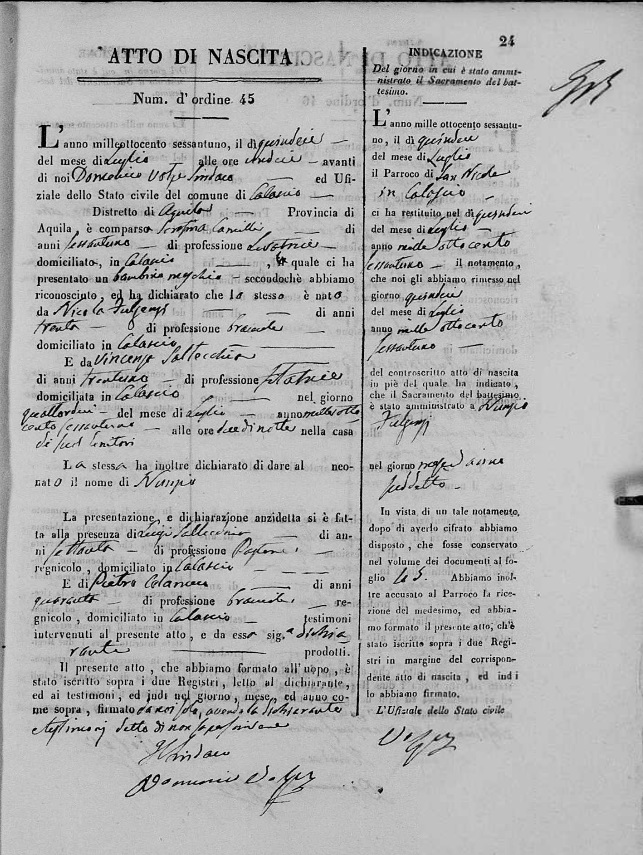 24
ATTO DI NASCITA
Num. d'ordine 45
L'anno milleottocento sessantuno, il dì quindeci
del mese di Luglio alle ore undeci avanti
di noi Domenico Volpe Sindaco ed Ufi-
ziale dello Stato civile del comune di Calascio
Distretto di Aquila Provincia di
Aquila è comparsa Serafina Camilli di
anni sessantuno di professione Levatrice
domiciliato, in Calascio quale ci ha
presentato un bambino maschio secondochè abbiamo
riconosciuto, ed ha dichiarato che lo stesso è nato
da Nicola Fulgenzi di anni
trenta di professione bracciale
domiciliato in Calascio
E da Vincenza
di anni trentuno di professione filatrice
domiciliata in Calascio nel giorno
quattordici del mese di Luglio anno mille otto
cento sessantuno alle ore due di notte nella casa
di sud. genitori
La stessa ha inoltre dichiarato di dare al neo-
nato il nome di Nunzio
La presentazione, e dichiarazione anzidetta si è fat-
ta alla presenza di Luigi di an-
ni settanta di professione
regnicolo, domiciliato in Calascio
E di Pietro di anni
quaranta di professione bracciale re-
gnicolo, domiciliato in Calascio testimoni
intervenuti al presente atto, e da essa sig.ª dichia
rante prodotti.
Il presente atto, che abbiamo formato all'uopo, è
stato iscritto sopra i due Registri, letto al dichiarante,
ed ai testimoni, ed indi nel giorno, mese, ed anno co-
me sopra, firmato da noi solo, avendo la dichiarante
e testimonj detto di non saper scrivere
Il Sindaco
Domenico Volpe
INDICAZIONE
Del giorno in cui è stato ammi-
nistrato il Sacramento del bat-
tesimo.
L'anno mille ottocento sessantu-
no, il dì quindeci
del mese di Luglio
il Parroco di San Nicola
in Calascio
ci ha restituito nel dì quindeci
del mese di Luglio
anno mille ottocento
sessantuno il notamento,
che noi gli abbiamo rimesso nel
giorno quindeci
del mese di Luglio
anno mille ottocento
sessantuno
del controscritto atto di nascita
in piè del quale ha indicato,
che il Sacramento del battesimo
è stato amministrato a Nunzio
Fulgenzi
nel giorno mese ed anno
suddetto
In vista di un tale notamento,
dopo di averlo cifrato abbiamo
disposto, che fosse conservato
nel volume dei documenti al fo-
glio 45. Abbiamo inol-
tre accusato al Parroco la rice-
zione del medesimo, ed abbia-
mo formato il presente atto, ch'è
stato iscritto sopra i due Regi-
stri in margine del corrispon-
dente atto di nascita, ed indi
lo abbiamo firmato.
L'Ufiziale dello Stato civile
Volpe